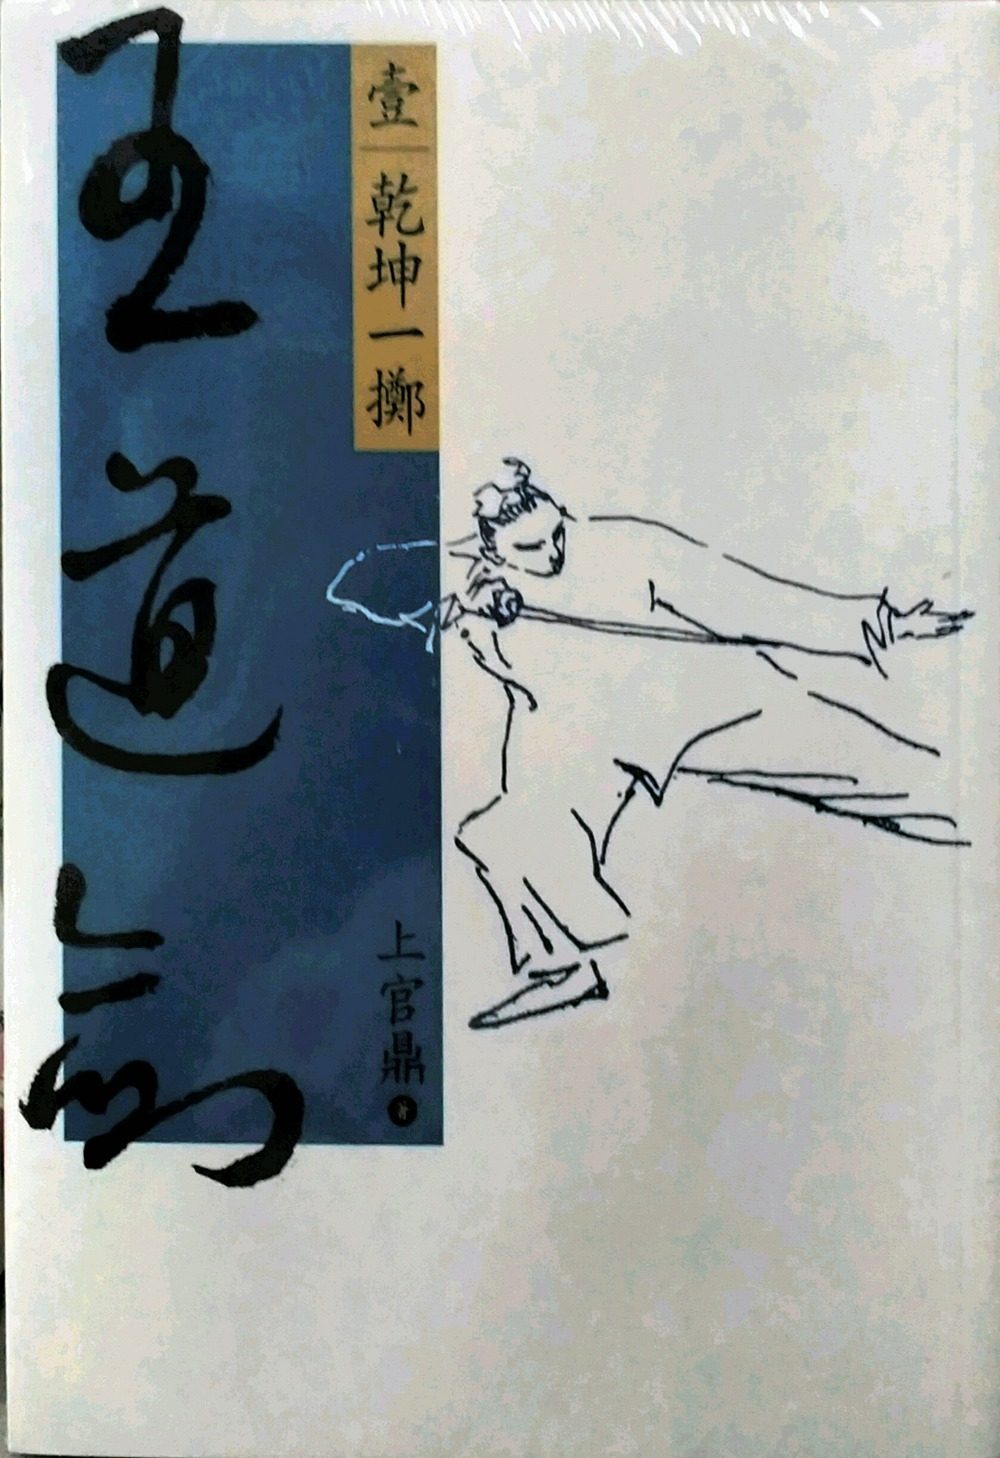 王道劍
壹
乾坤一擲
上官鼎 著